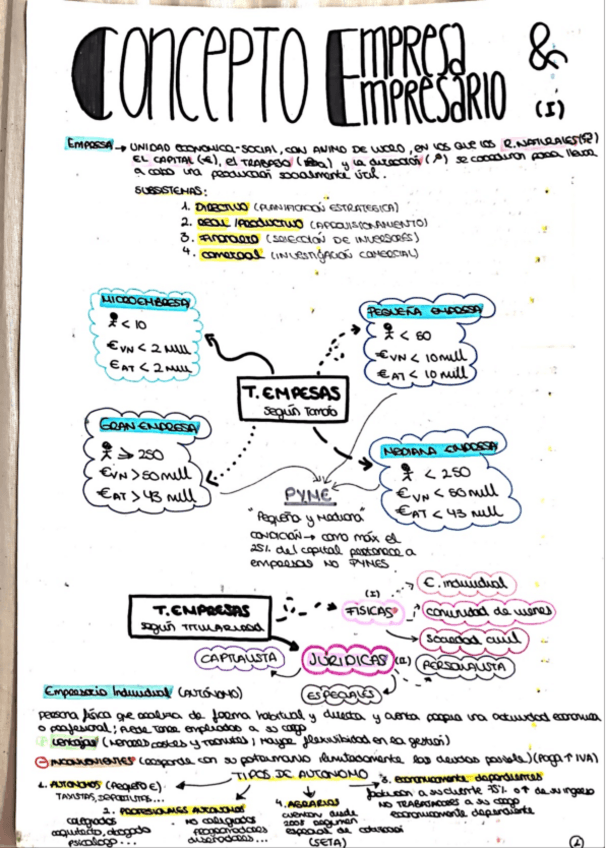 CONCEPTO EMPRESA &
EMPRESARIO (I)
EMPRESA → UNIDAD ECONOMICA-SOCIAL, CON ANIMO DE LUCRO, EN LOS QUE LOS R.NATURALES
EL CAPITAL (€), EL TRABAJO y la dirección se coordinan para llevar
a cabo una producción socialmente útil.
SUBSISTEMAS:
1. DIRECTIVO (PLANIFICACIÓN ESTRATEGICA)
2. REAL /PRODUCTIVO (APROVISIONAMIENTO)
3. FINANCIERO (SELECCIÓN DE INVERSORES)
4. COMERCIAL (INVESTIGACIÓN COMERCIAL)
MICROEMPRESA
< 10
€VN < 2 mill
€AT < 2 mill
PEQUEÑA EMPRESA
< 50
€VN < 10 mill
€AT < 10 mill
T. EMPESAS
según Tamaño
GRAN EMPRESA
≥ 250
€VN > 50 mill
€AT > 43 mill
MEDIANA EMPRESA
< 250
€VN < 50 mill
€AT < 43 mill
PYME
"Pequeña y Mediana"
CONDICIÓN → como máx el
25% del capital pertenece a
empresas NO PYMES
T. EMPRESAS
según TITULARIDAD
(I)
FÍSICAS
E. individual
comunidad de bienes
sociedad civil
CAPITALISTA
JÚRIDICAS (II)
PERSONALISTA
ESPECIALES
Empresario Individual (AUTÓNOMO)
Persona física que realiza de forma habitual y directa y cuenta propia una actividad económica
o profesional; puede tener empleados a su cargo
Ventajas (Menores costes y trámites; Mayor flexibilidad en la gestión)
INCONVENIENTES (responde con su patrimonio ilimitadamente las deudas) (Paga ↑ IVA)
TIPOS DE AUTONOMO
1. AUTÓNOMOS (Pequeño E)
TAXISTAS, DEPORTISTAS...
2. PROFESIONALES AUTÓNOMOS
colegiados
arquitecto, abogado
psicólogo...
NO colegiados
programadores
diseñadores...
3. económicamente dependientes
75% o ↑ de su ingreso
NO TRABAJADORES a su cargo
económicamente dependiente
4. AGRARIOS
cuentan desde
2008 régimen
especial de cotización
(SETA)